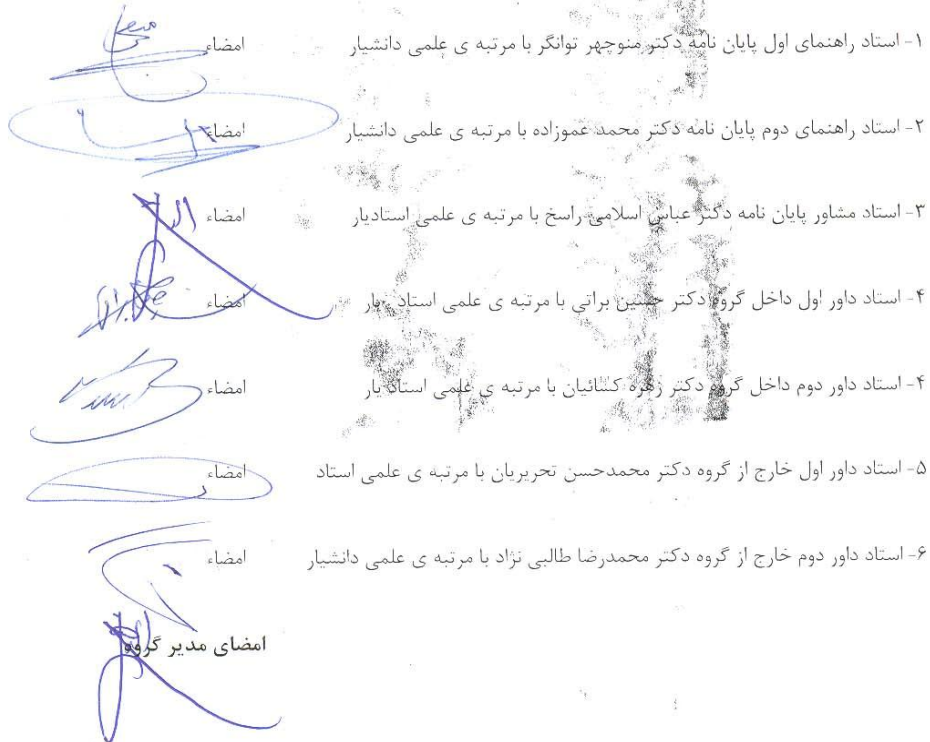 ۱- استاد راهنمای اول پایان نامه دکتر منوچهر توانگر با مرتبه ی علمی دانشیار امضاء
۲- استاد راهنمای دوم پایان نامه دکتر محمد عموزاده با مرتبه ی علمی دانشیار امضاء
۳- استاد مشاور پایان نامه دکتر عباس اسلامی راسخ با مرتبه ی علمی استادیار امضاء
۴- استاد داور اول داخل گروه دکتر حسین براتی با مرتبه ی علمی استاد یار امضاء
۴- استاد داور دوم داخل گروه دکتر زهره کسائیان با مرتبه ی علمی استاد یار امضاء
۵- استاد داور اول خارج از گروه دکتر محمدحسن تحریریان با مرتبه ی علمی استاد امضاء
۶- استاد داور دوم خارج از گروه دکتر محمدرضا طالبی نژاد با مرتبه ی علمی دانشیار امضاء
امضای مدیر گروه